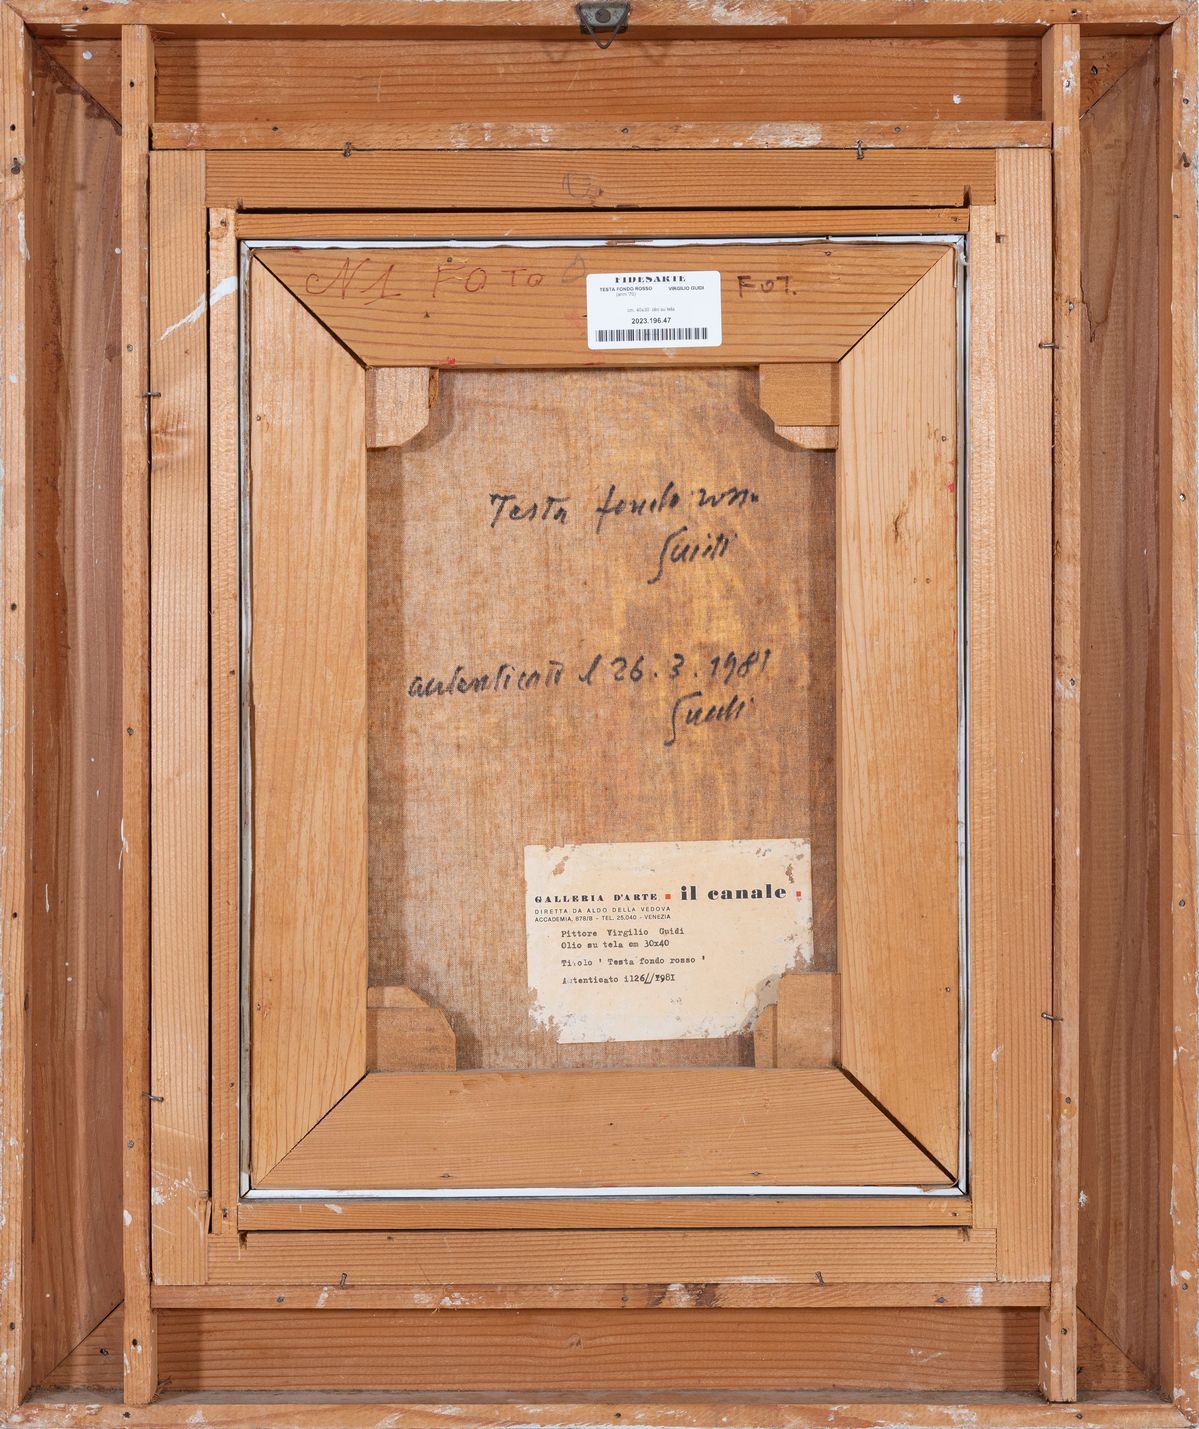 N1 FOTO
FIDESARTE
TESTA FONDO ROSSO VIRGILIO GUIDI
(anni '70)
cm. 40x30 olio su tela
2023.196.47
FOT.
Testa fondo rosso
Guidi
autenticato il 26.3.1981
Guidi
GALLERIA D'ARTE il canale
DIRETTA DA ALDO DELLA VEDOVA
ACCADEMIA, 878/B - TEL. 25.040 - VENEZIA
Pittore Virgilio Guidi
Olio su tela cm 30x40
Titolo ' Testa fondo rosso '
Autenticato il26//1981